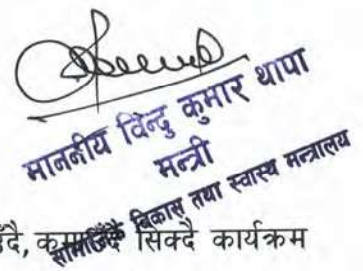 माननीय विन्दु कुमार थापा
मन्त्री
सामाजिक विकास तथा स्वास्थ्य मन्त्रालय
सिक्दै कार्यक्रम